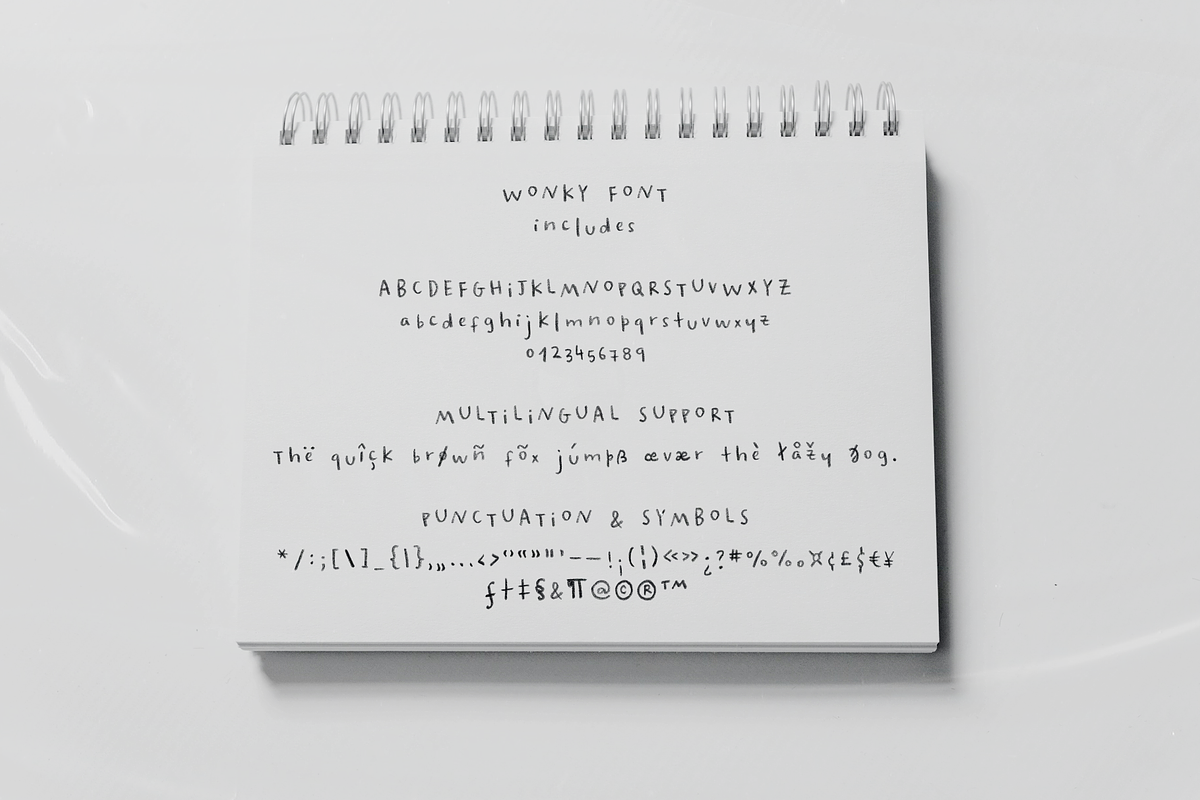 WONKY FONT
includes
ABCDEFGHiJKLMNOPQRSTUVWXYZ
abcdefghijklmnopqrstuvwxyz
0123456789
MULTiLiNGUAL SUPPORT
Thë quîçk brøwñ fõx júmpß œvær thè łåžy ðog.
PUNCTUATiON & SYMBOLS
*/:;[\]_{|}‚„…‹›‘’“”"'–—!¡(¦)«»¿?#%‰¤¢£$€¥
ƒ†‡§&¶@©®™